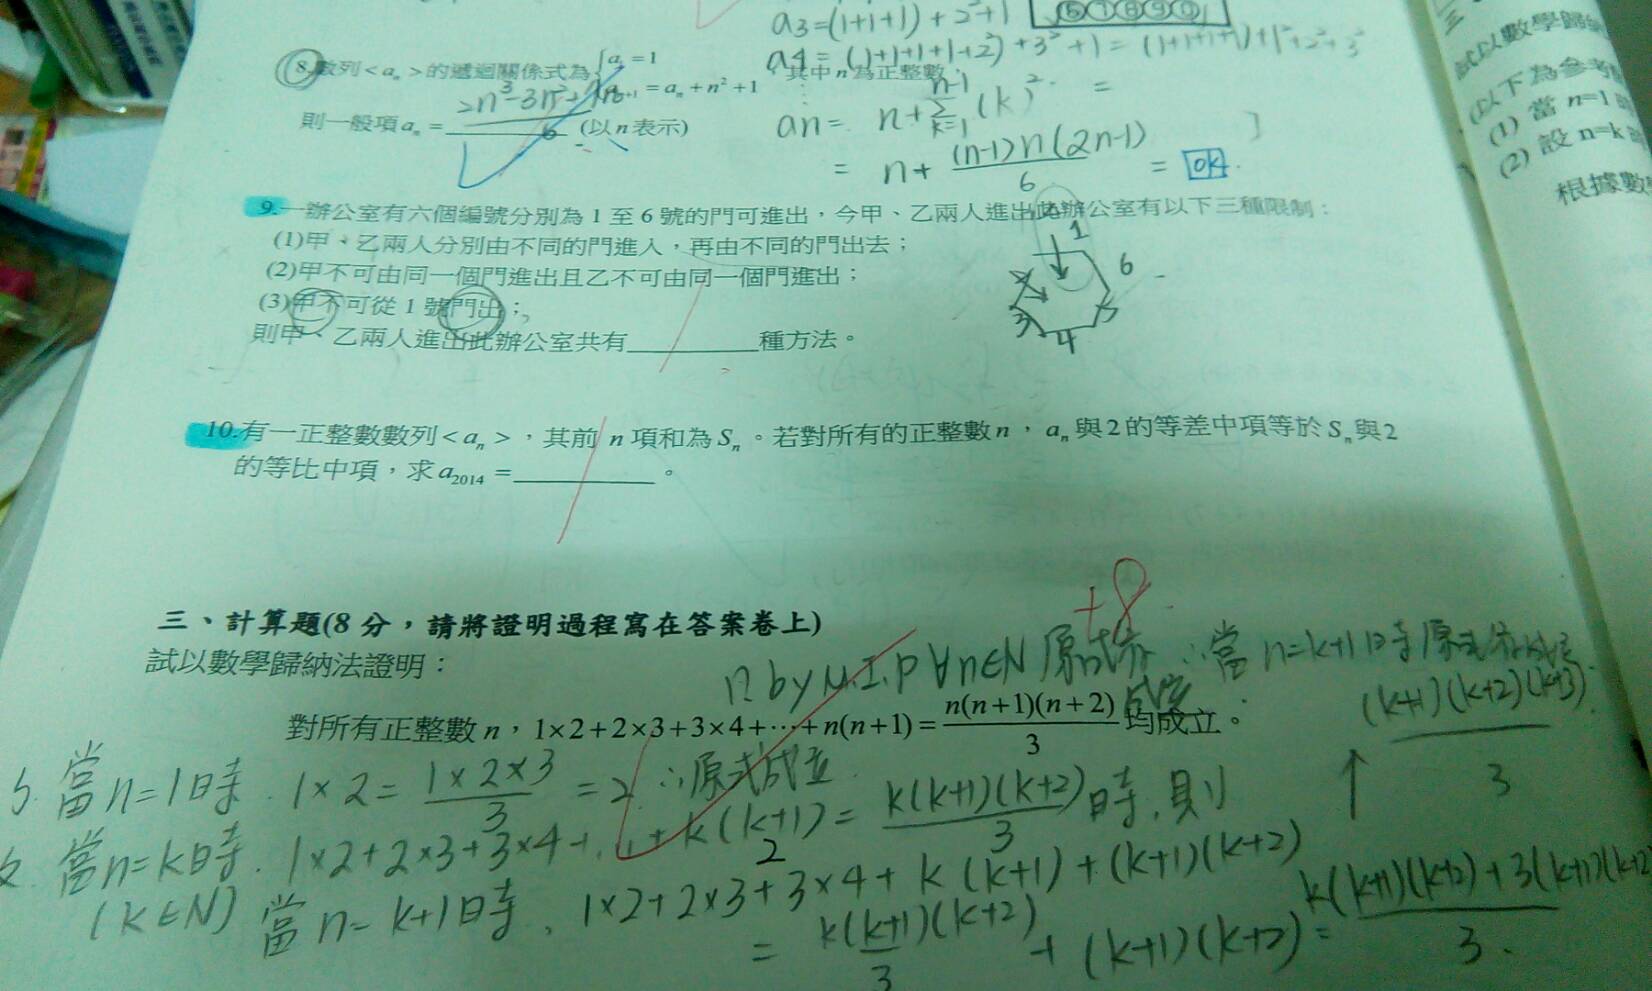 a3=(1+1+1)+2²+1
⑥⑦⑧⑨⓪
a4=(1+1+1+1+2²)+3²+1=(1+1+1+1)+1²+2²+3²
8.數列<aₙ>的遞迴關係式為{a₁=1 aₙ₊₁=aₙ+n²+1,其中n為正整數,
2n³-3n²+7n
則一般項aₙ=______6(以n表示)
an= n+ Σ k=1 n-1 (k)² =
= n+ (n-1)n(2n-1)/6 = OK.
9.一辦公室有六個編號分別為1至6號的門可進出,今甲、乙兩人進出此辦公室有以下三種限制:
(1)甲、乙兩人分別由不同的門進入,再由不同的門出去;
(2)甲不可由同一個門進出且乙不可由同一個門進出;
(3)甲不可從1號門出;
則甲、乙兩人進出此辦公室共有______種方法。
1
6
3
4
5
10.有一正整數數列<aₙ>,其前n項和為Sₙ。若對所有的正整數n,aₙ與2的等差中項等於Sₙ與2
的等比中項,求a₂₀₁₄=______。
三、計算題(8分,請將證明過程寫在答案卷上)
+8
試以數學歸納法證明:
by M.I.P ∀n∈N 原式亦成立
∴當n=k+1時原式亦成立
對所有正整數n,1×2+2×3+3×4+⋯+n(n+1)=n(n+1)(n+2)/3 均成立。
(k+1)(k+2)(k+3)/3
↑
當n=1時.1×2=1×2×3/3=2 ∴原式成立.
2.當n=k時.1×2+2×3+3×4+...+k(k+1)=k(k+1)(k+2)/3時,則
(k∈N)當n=k+1時、1×2+2×3+3×4+k(k+1)+(k+1)(k+2)
=k(k+1)(k+2)/3+(k+1)(k+2)=k(k+1)(k+2)+3(k+1)(k+2)/3.
試以數學歸納
(以下為參考
(1)當n=1時
(2)設n=k
根據數學